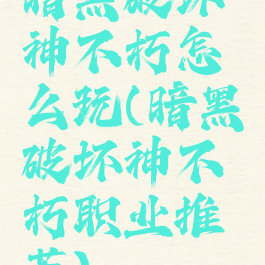 暗黑破坏
神不朽怎
么玩(暗黑
破坏神不
朽职业推
荐)